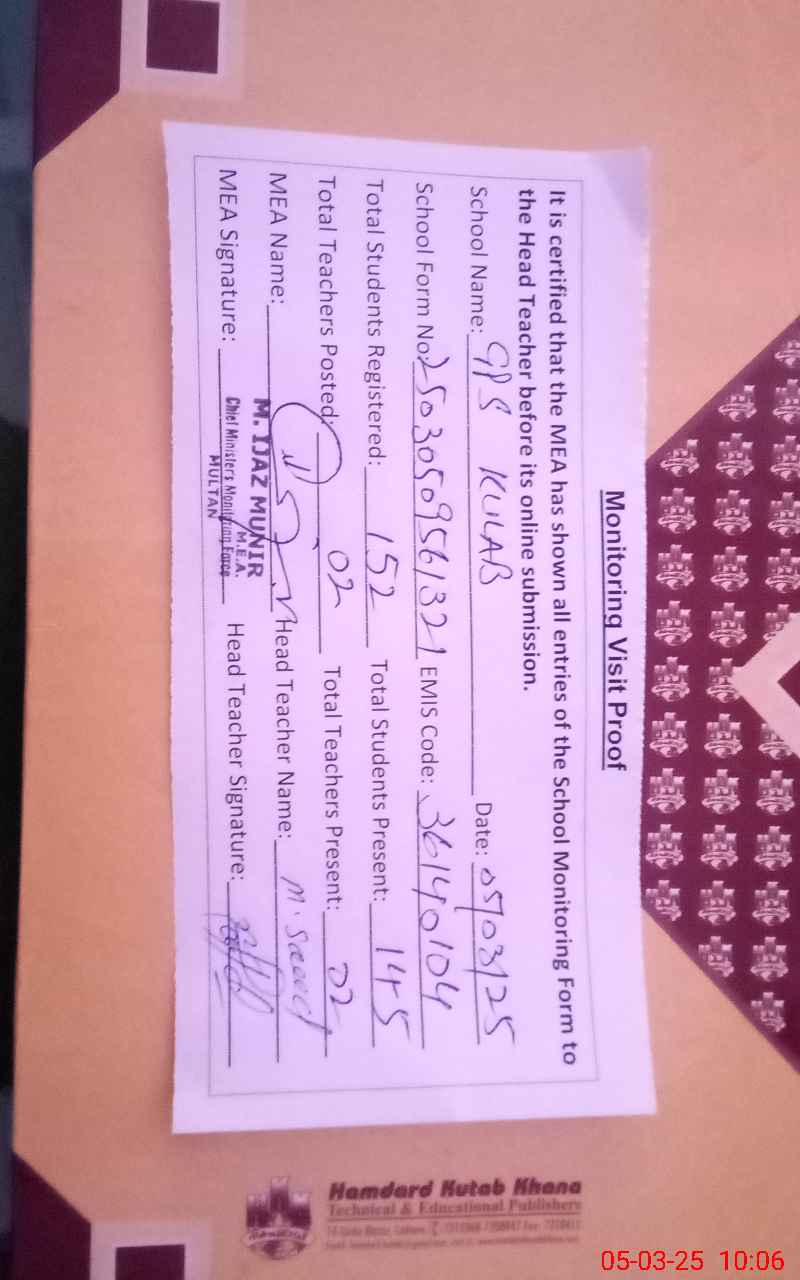 Monitoring Visit Proof
It is certified that the MEA has shown all entries of the School Monitoring Form to
the Head Teacher before its online submission.
School Name: GPS KULAB Date: 05/03/25
School Form No: 25030509561321 EMIS Code: 36140104
Total Students Registered: 152 Total Students Present: 145
Total Teachers Posted: 02 Total Teachers Present: 02
MEA Name: Head Teacher Name: M. Saeed
MEA Signature: Head Teacher Signature:
M. IJAZ MUNIR
M.E.A.
Chief Minister's Monitoring Force
MULTAN
Hamdard Kutab Khana
Technical & Educational Publishers
05-03-25 10:06